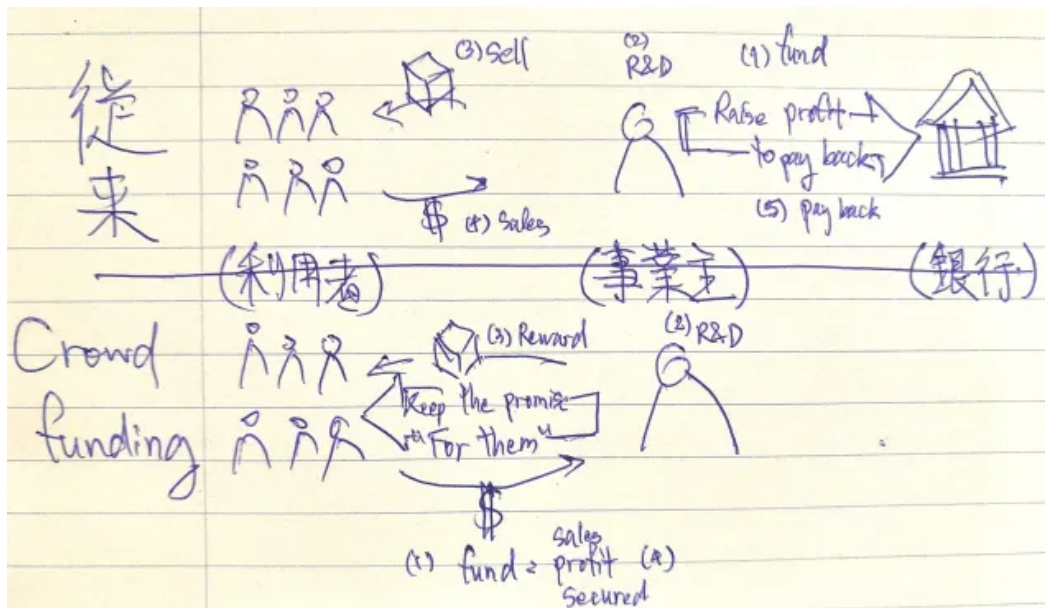 従来
(3) Sell
(2)
R&D
(1) fund
Raise profit
to pay back
$ (4) Sales
(5) pay back
(利用者)
(事業主)
(銀行)
Crowd
funding
(3) Reward
(2) R&D
Keep the promise
"For them"
$
(1) fund = sales
profit (4)
secured